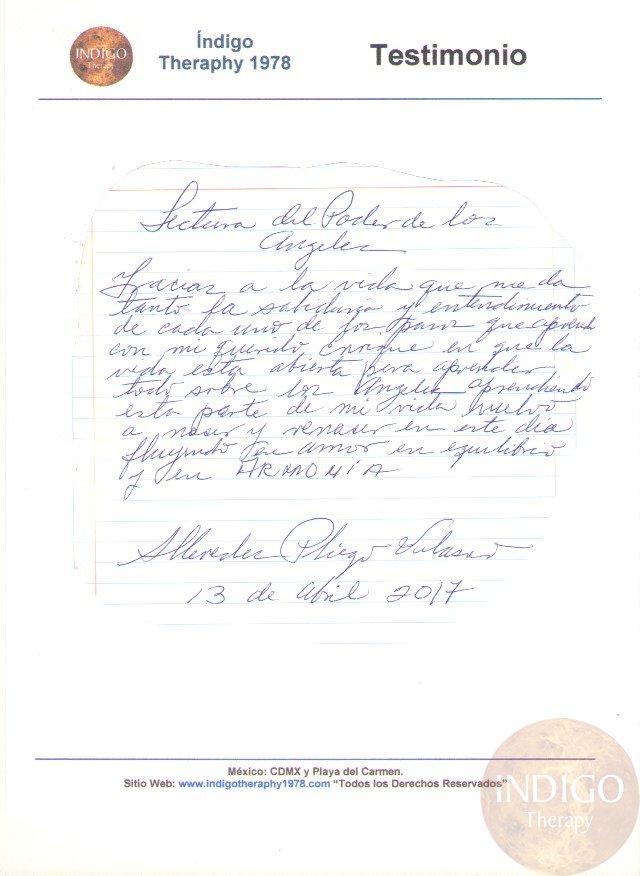 INDIGO
Therapy
Índigo
Theraphy 1978
Testimonio
Lectura del Poder de los
Angeles
Gracias a la vida que me da
tanto la sabiduría y entendimiento
de cada uno de los pasos que aprendí
con mi querido Enrique en que la
vida esta abierta para aprender
todo sobre los Angeles aprendiendo
esta parte de mi vida vuelvo
a nacer y renacer en este día
fluyendo en amor en equilibrio
y en ARMONÍA
Mercedes Pliego
13 de Abril 2017
México: CDMX y Playa del Carmen.
Sitio Web: www.indigotheraphy1978.com “Todos los Derechos Reservados”
iNDIGO
Therapy